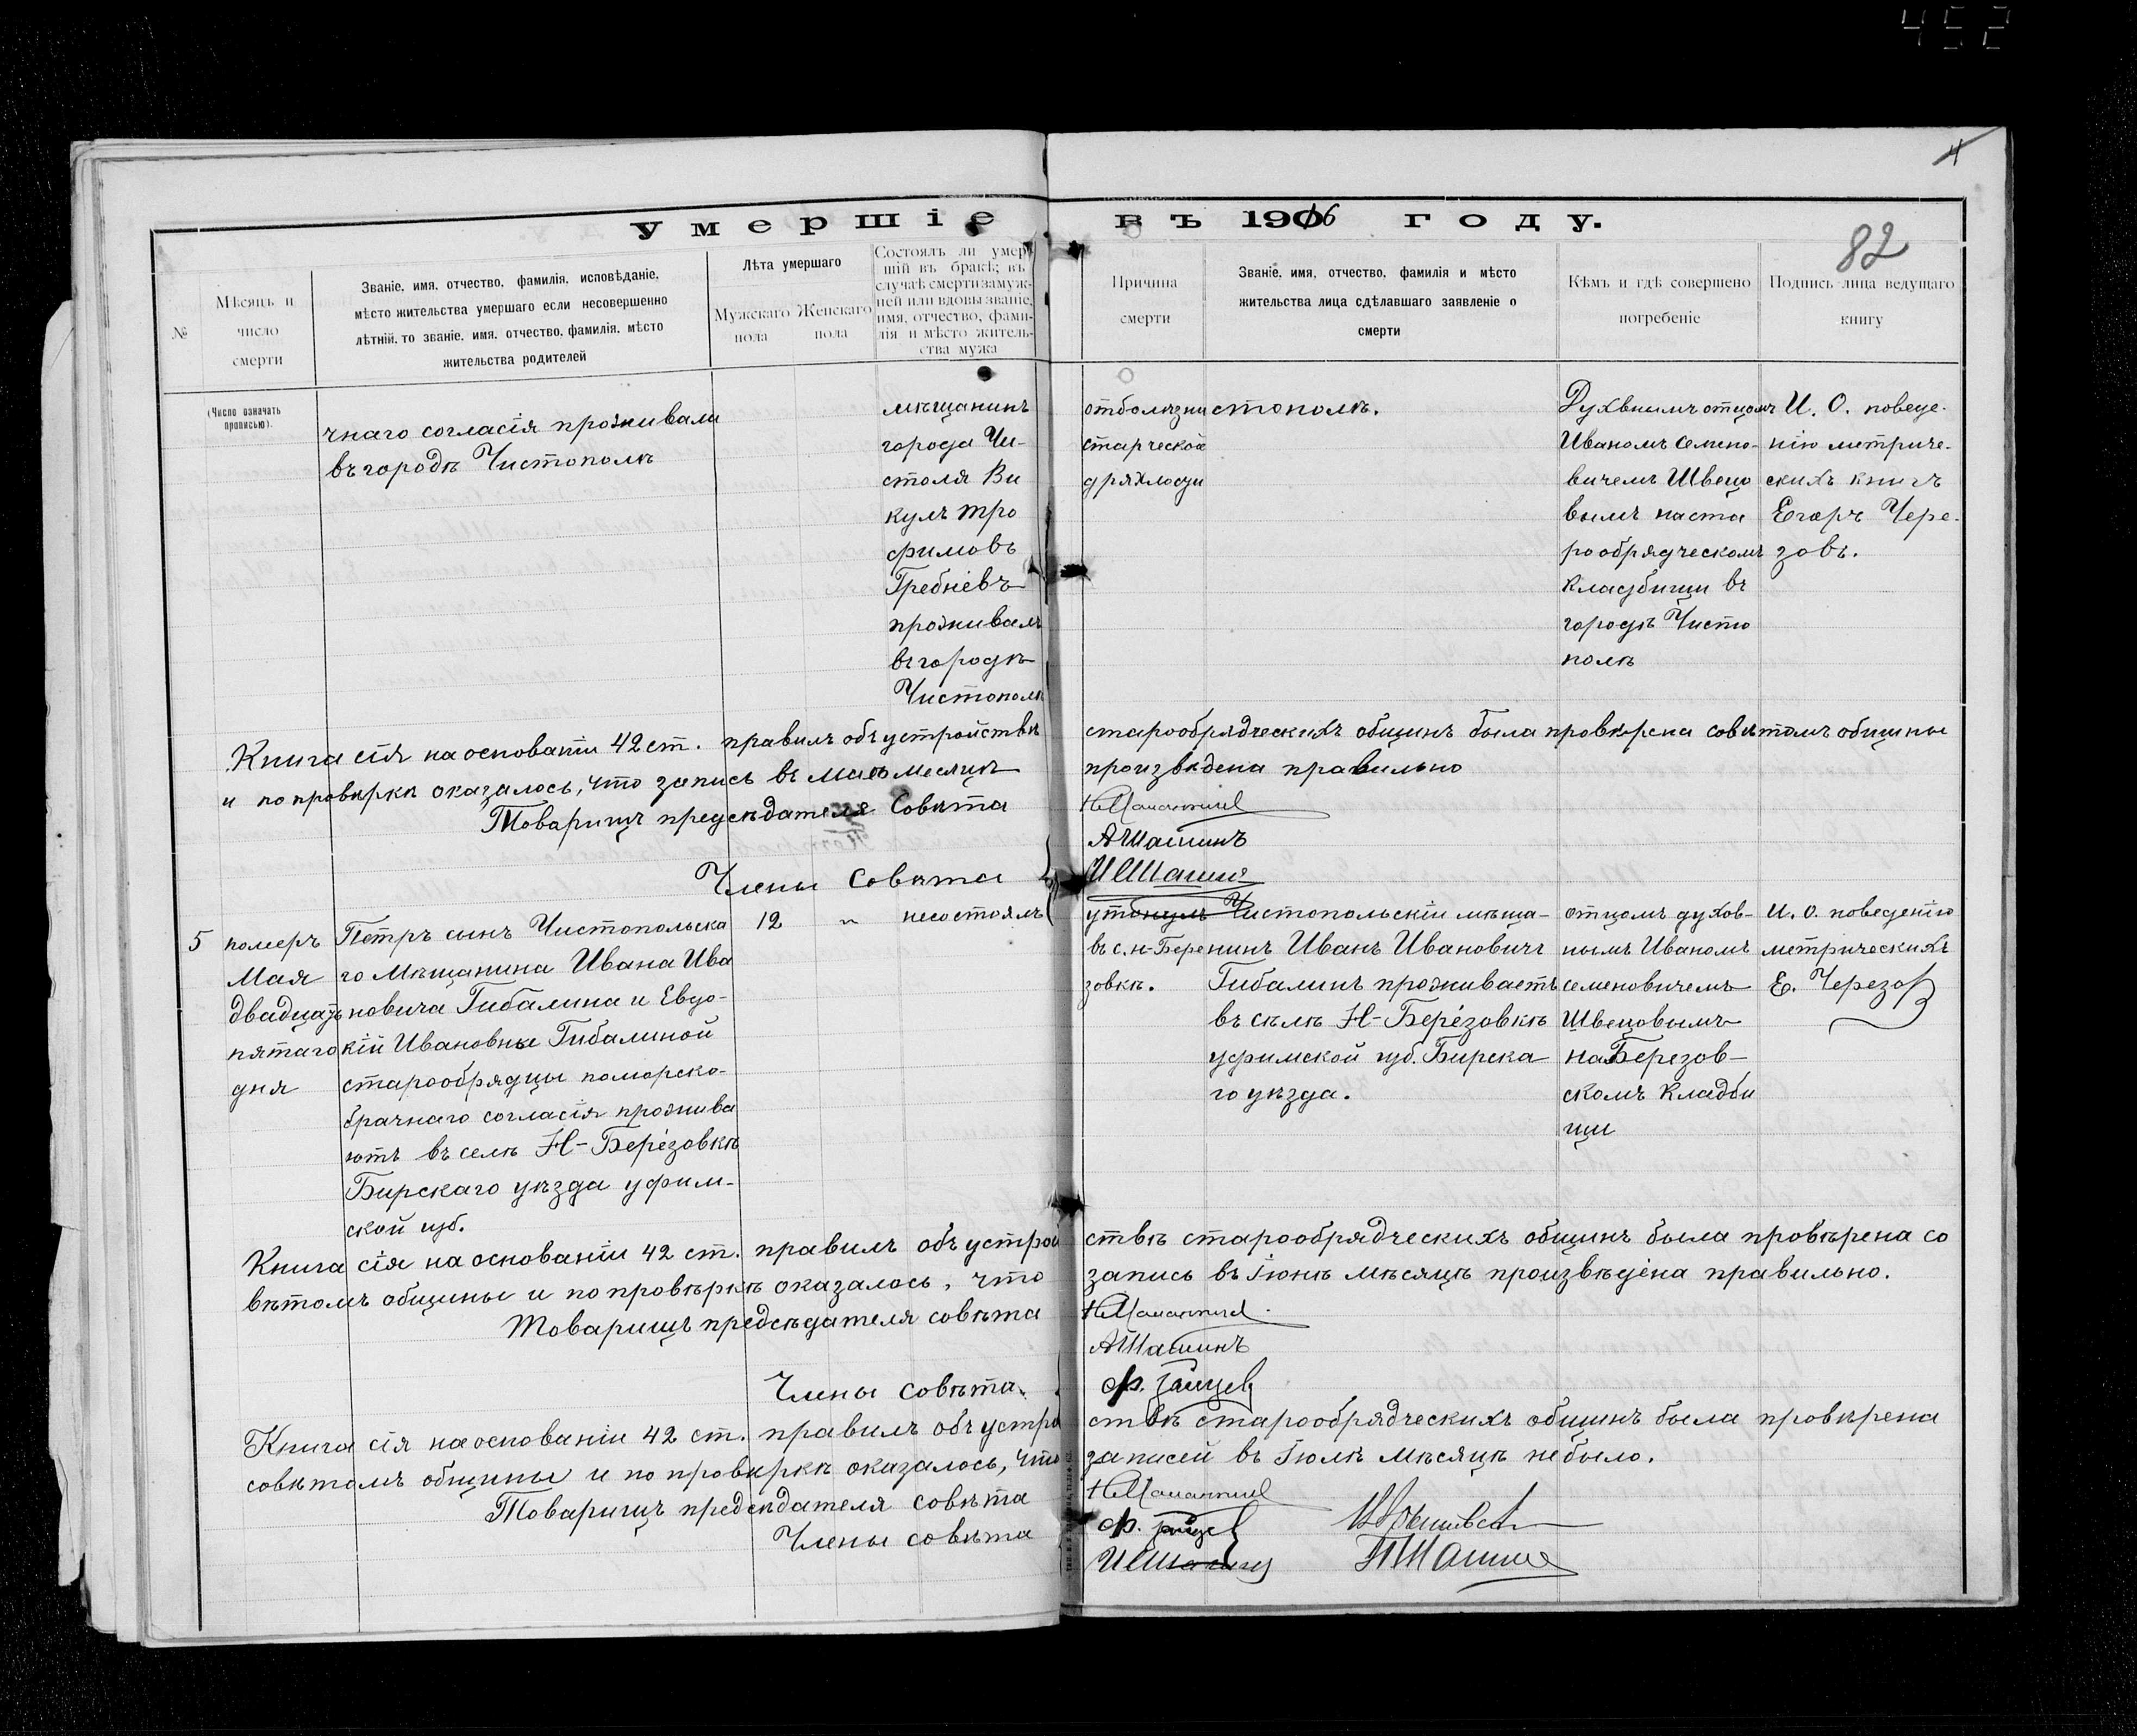 452
4
умершіе въ 1916 году.
82
№
Мѣсяцъ и
число
смерти
Званіе, имя, отчество, фамилія, исповѣданіе,
мѣсто жительства умершаго если несовершенно
лѣтній, то званіе, имя, отчество, фамилія, мѣсто
жительства родителей
Лѣта умершаго
Мужскаго
пола
Женскаго
пола
Состоялъ ли умер-
шій въ бракѣ; въ
случаѣ смерти замуж-
ней или вдовы званіе,
имя, отчество, фами-
лія и мѣсто житель-
ства мужа
Причина
смерти
Званіе, имя, отчество, фамилія и мѣсто
жительства лица сдѣлавшаго заявленіе о
смерти
Кѣмъ и гдѣ совершено
погребеніе
Подпись лица ведущаго
книгу
(Число означать
прописью).
чнаго согласія проживали
въ городѣ Чистополѣ
мѣщанинъ
города Чи-
столя Ви
кулъ Тро
фимовъ
Гребнѣвъ
проживалъ
въ городѣ
Чистополѣ
отболѣзни
старческой
дряхлости
стополѣ.
Духвнымъ отцомъ
Иваномъ Семено-
вичемъ Швецо
вымъ на ста
рообрядческомъ
кладбищи въ
городѣ Чисто
полѣ
И. О. поведе-
нію метриче-
скихъ книгъ
Егоръ Чере-
зовъ.
Книга сія на основаніи 42 ст. правилъ объ устройствѣ старообрядческихъ общинъ была провѣрена совѣтомъ общины
и по провѣркѣ оказалось, что запись въ Маѣ месяцѣ произвѣдена правильно
Товарищъ предсѣдателя Совѣта
АШашинъ
Члены Совѣта
ИСШашинъ
5
померъ
Мая
двадцать
пятаго
дня
Петръ сынъ Чистопольска
го Мѣщанина Ивана Ива
новича Гибалина и Евдо-
кіи Ивановны Гибалиной
старообрядцы поморско-
брачнаго согласія прожива
ютъ въ селѣ Н-Берёзовкѣ
Бирскаго уѣзда уфим-
ской губ.
12
"
несостоялъ
утонулъ
въ с. Н-Бере
зовкѣ.
Чистопольскій мѣща-
нинъ Иванъ Ивановичъ
Гибалинъ проживаетъ
въ сѣлѣ Н-Берёзовкѣ
уфимской губ. Бирска
го уѣзда.
отцомъ духов-
нымъ Иваномъ
семеновичемъ
Швецовымъ
на Березов-
скомъ Кладби
щи
И. О. поведенію
метрическихъ
Е. Черезов
Книга сія на основаніи 42 ст. правилъ объ устрой ствѣ старообрядческихъ общинъ была провѣрена со
вѣтомъ общины и по провѣркѣ оказалось, что запись въ Іюнѣ мѣсяцѣ произвѣдена правильно.
Товарищъ предсѣдателя совѣта
АШашинъ
Члены совѣта.
Книга сія на основаніи 42 ст. правилъ объ устро ствѣ старообрядческихъ общинъ была провѣрена
совѣтомъ общины и по провѣркѣ оказалось, что записей въ Іюлѣ мѣсяцѣ небыло.
Товарищъ предсѣдателя совѣта
Члены совѣта